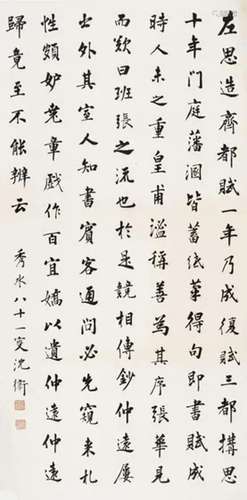 左思造齊都賦一年乃成復賦三都搆思
十年門庭藩溷皆著紙筆得句即書賦成
時人未之重皇甫謐稱善為其序張華見
而歎曰班張之流也於是競相傳鈔仲遠屢
出外其室人知書賓客通問必先窺来札
性頗妒耄章戲作百宜嬌以遺仲遠仲遠
歸竟至不能辯云
秀水八十一叟沈衛